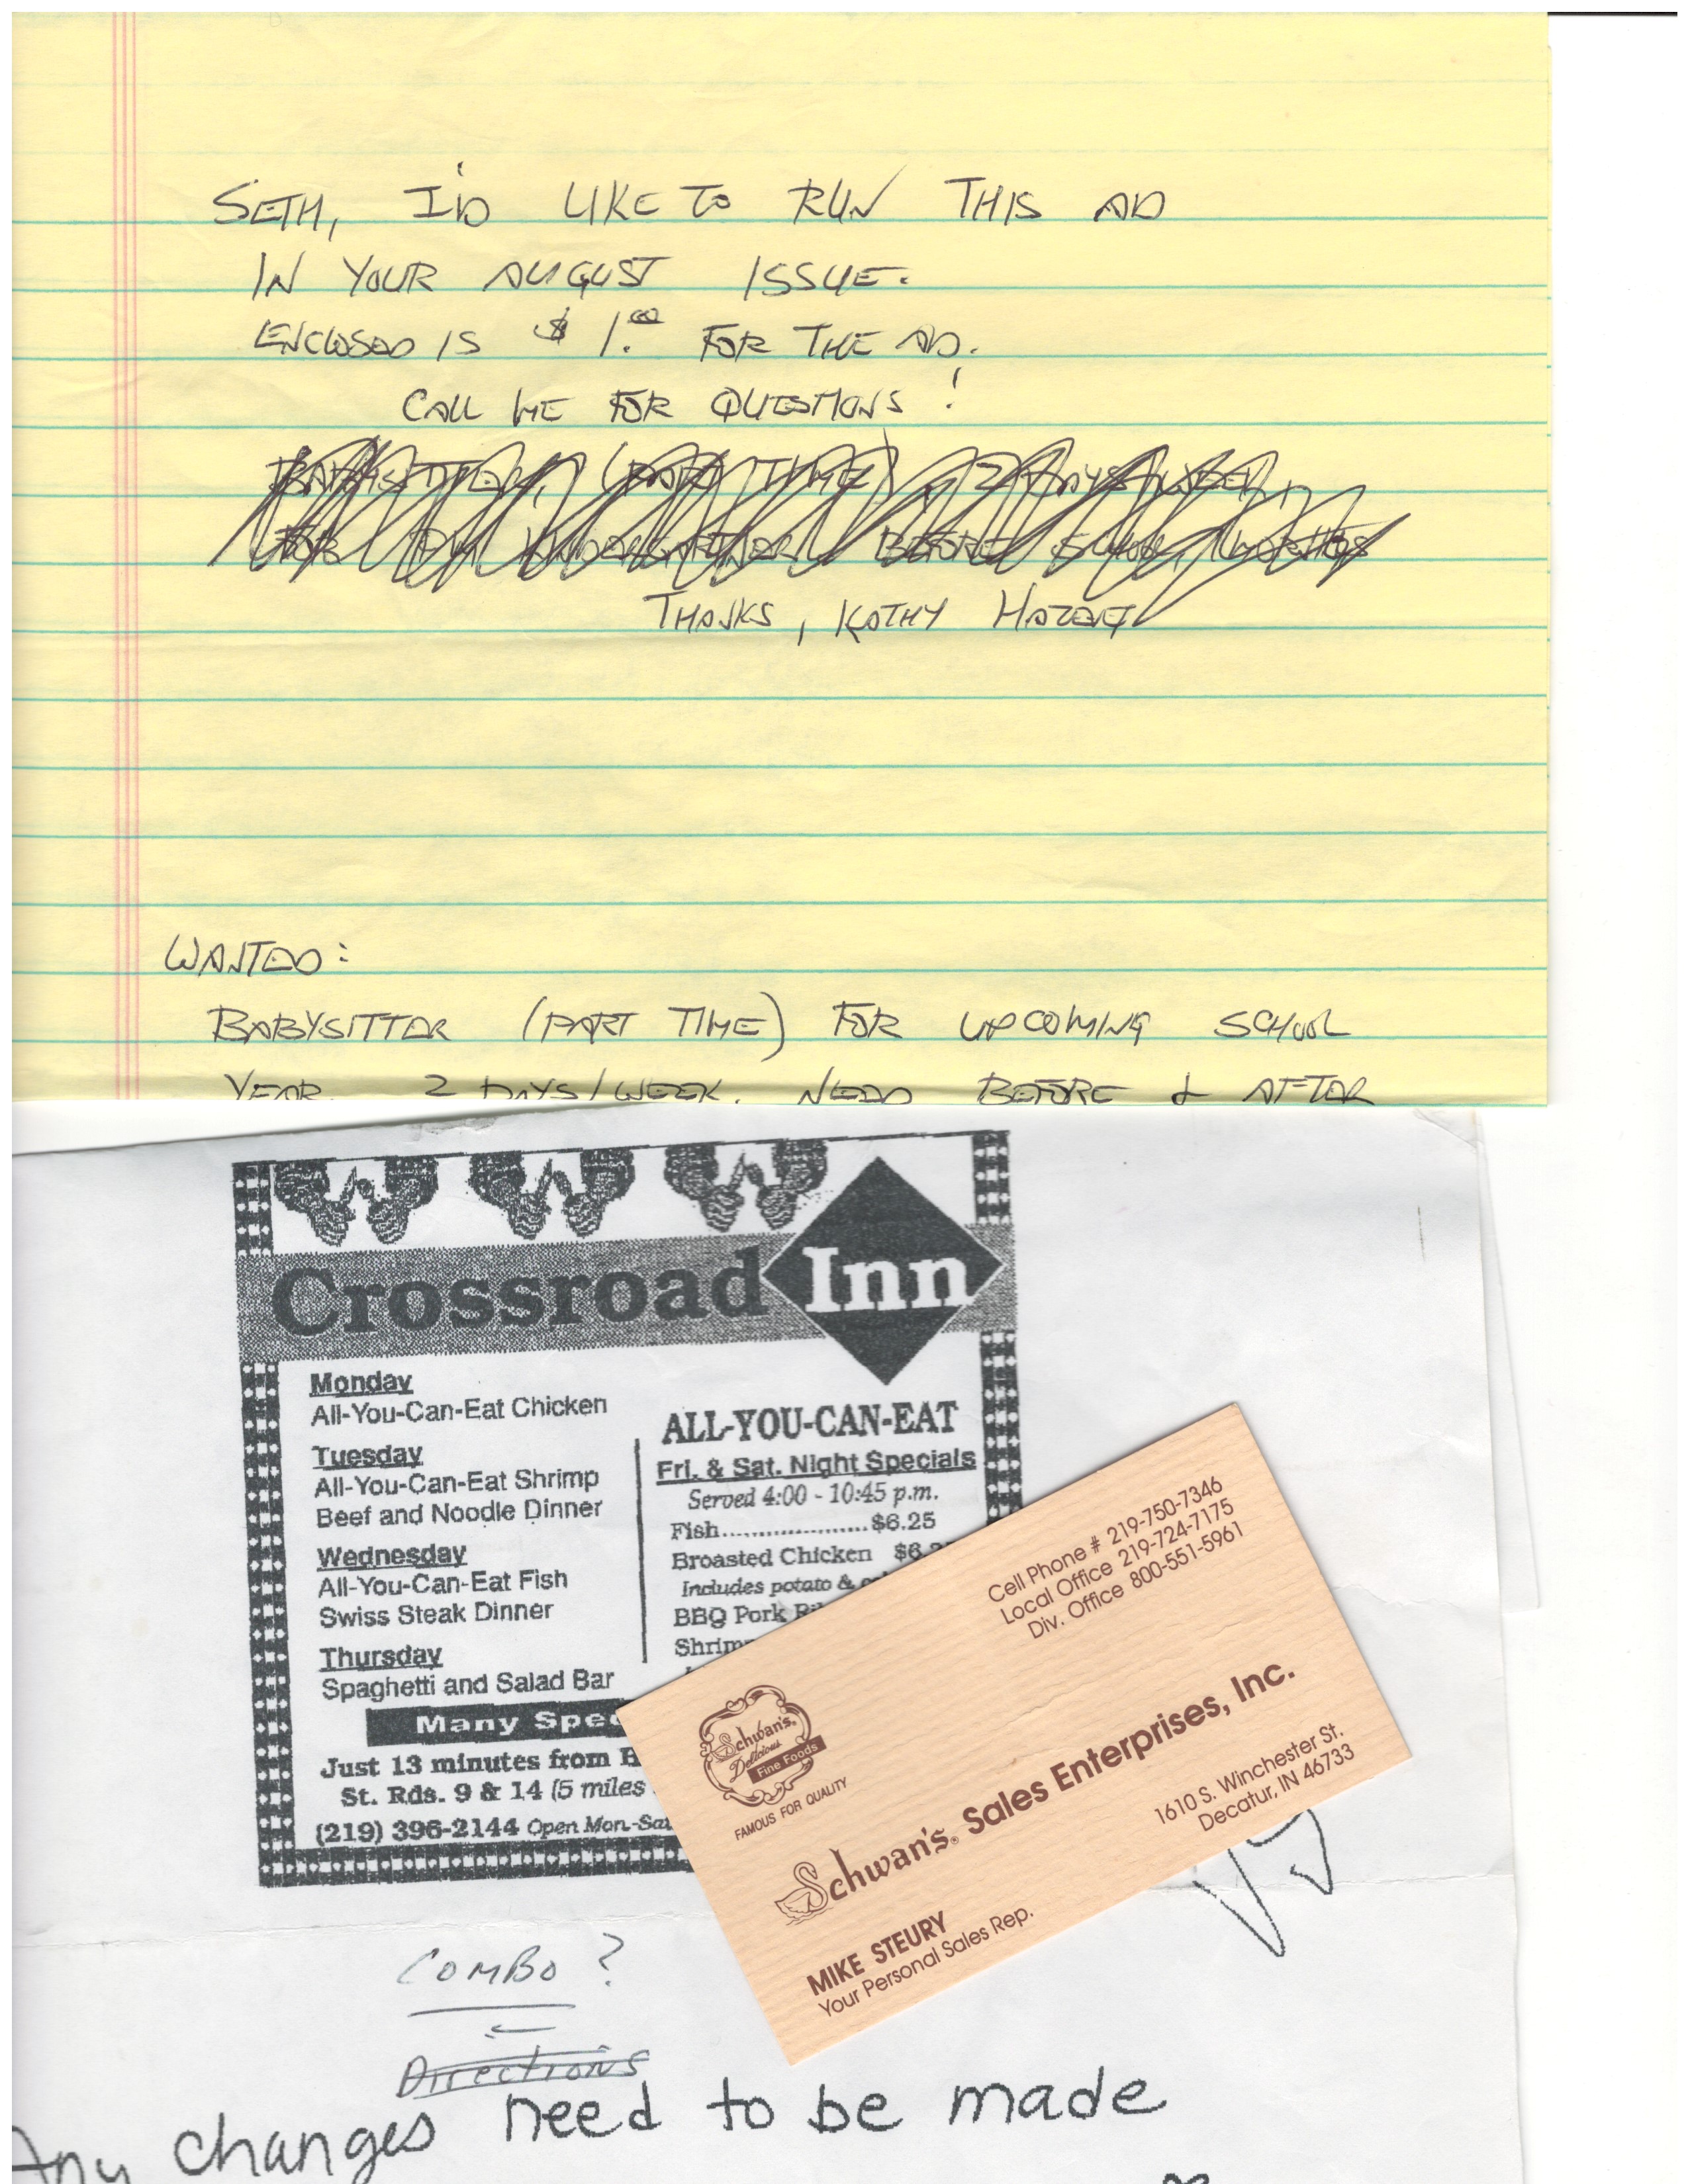 SETH, I'D LIKE TO RUN THIS AD
IN YOUR AUGUST ISSUE.
ENCLOSED IS $1.00 FOR THE AD.
CALL ME FOR QUESTIONS!
BABYSITTER, (PART TIME) 2 DAYS/WEEK,
FOR KINDERGARTNER BEFORE SCHOOL
THANKS, KATHY
WANTED:
BABYSITTER (PART TIME) FOR UPCOMING SCHOOL
YEAR. 2 DAYS/WEEK. NEED BEFORE & AFTER
Crossroad Inn
Monday
All-You-Can-Eat Chicken
Tuesday
All-You-Can-Eat Shrimp
Beef and Noodle Dinner
Wednesday
All-You-Can-Eat Fish
Swiss Steak Dinner
Thursday
Spaghetti and Salad Bar
ALL-YOU-CAN-EAT
Fri. & Sat. Night Specials
Served 4:00 - 10:45 p.m.
Fish....................$6.25
Broasted Chicken $6.
Includes potato &
BBQ Pork
Shrim
Many Spec
Just 13 minutes from
St. Rds. 9 & 14 (5 miles
(219) 396-2144 Open Mon.-Sat
Cell Phone # 219-750-7346
Local Office 219-724-7175
Div. Office 800-551-5961
Schwan's
Delicious
Fine Foods
FAMOUS FOR QUALITY
Schwan's® Sales Enterprises, Inc.
1610 S. Winchester St.
Decatur, IN 46733
MIKE STEURY
Your Personal Sales Rep.
COMBO?
Directions
Any changes need to be made